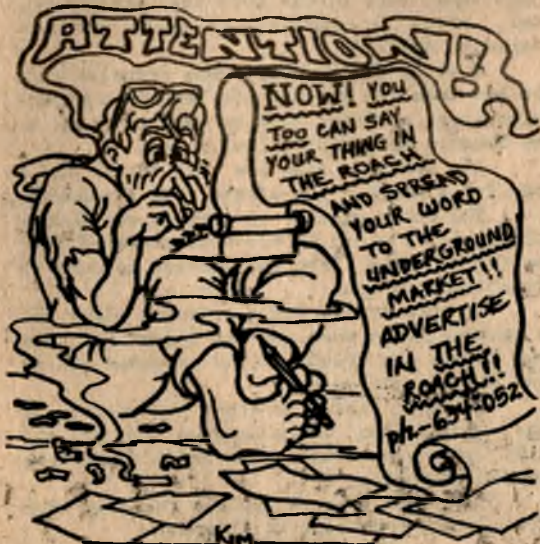 ATTENTION!
NOW! YOU
TOO CAN SAY
YOUR THING IN
THE ROACH
AND SPREAD
YOUR WORD
TO THE
UNDERGROUND
MARKET!!
ADVERTISE
IN THE
ROACH!!
ph-634-052
Kim